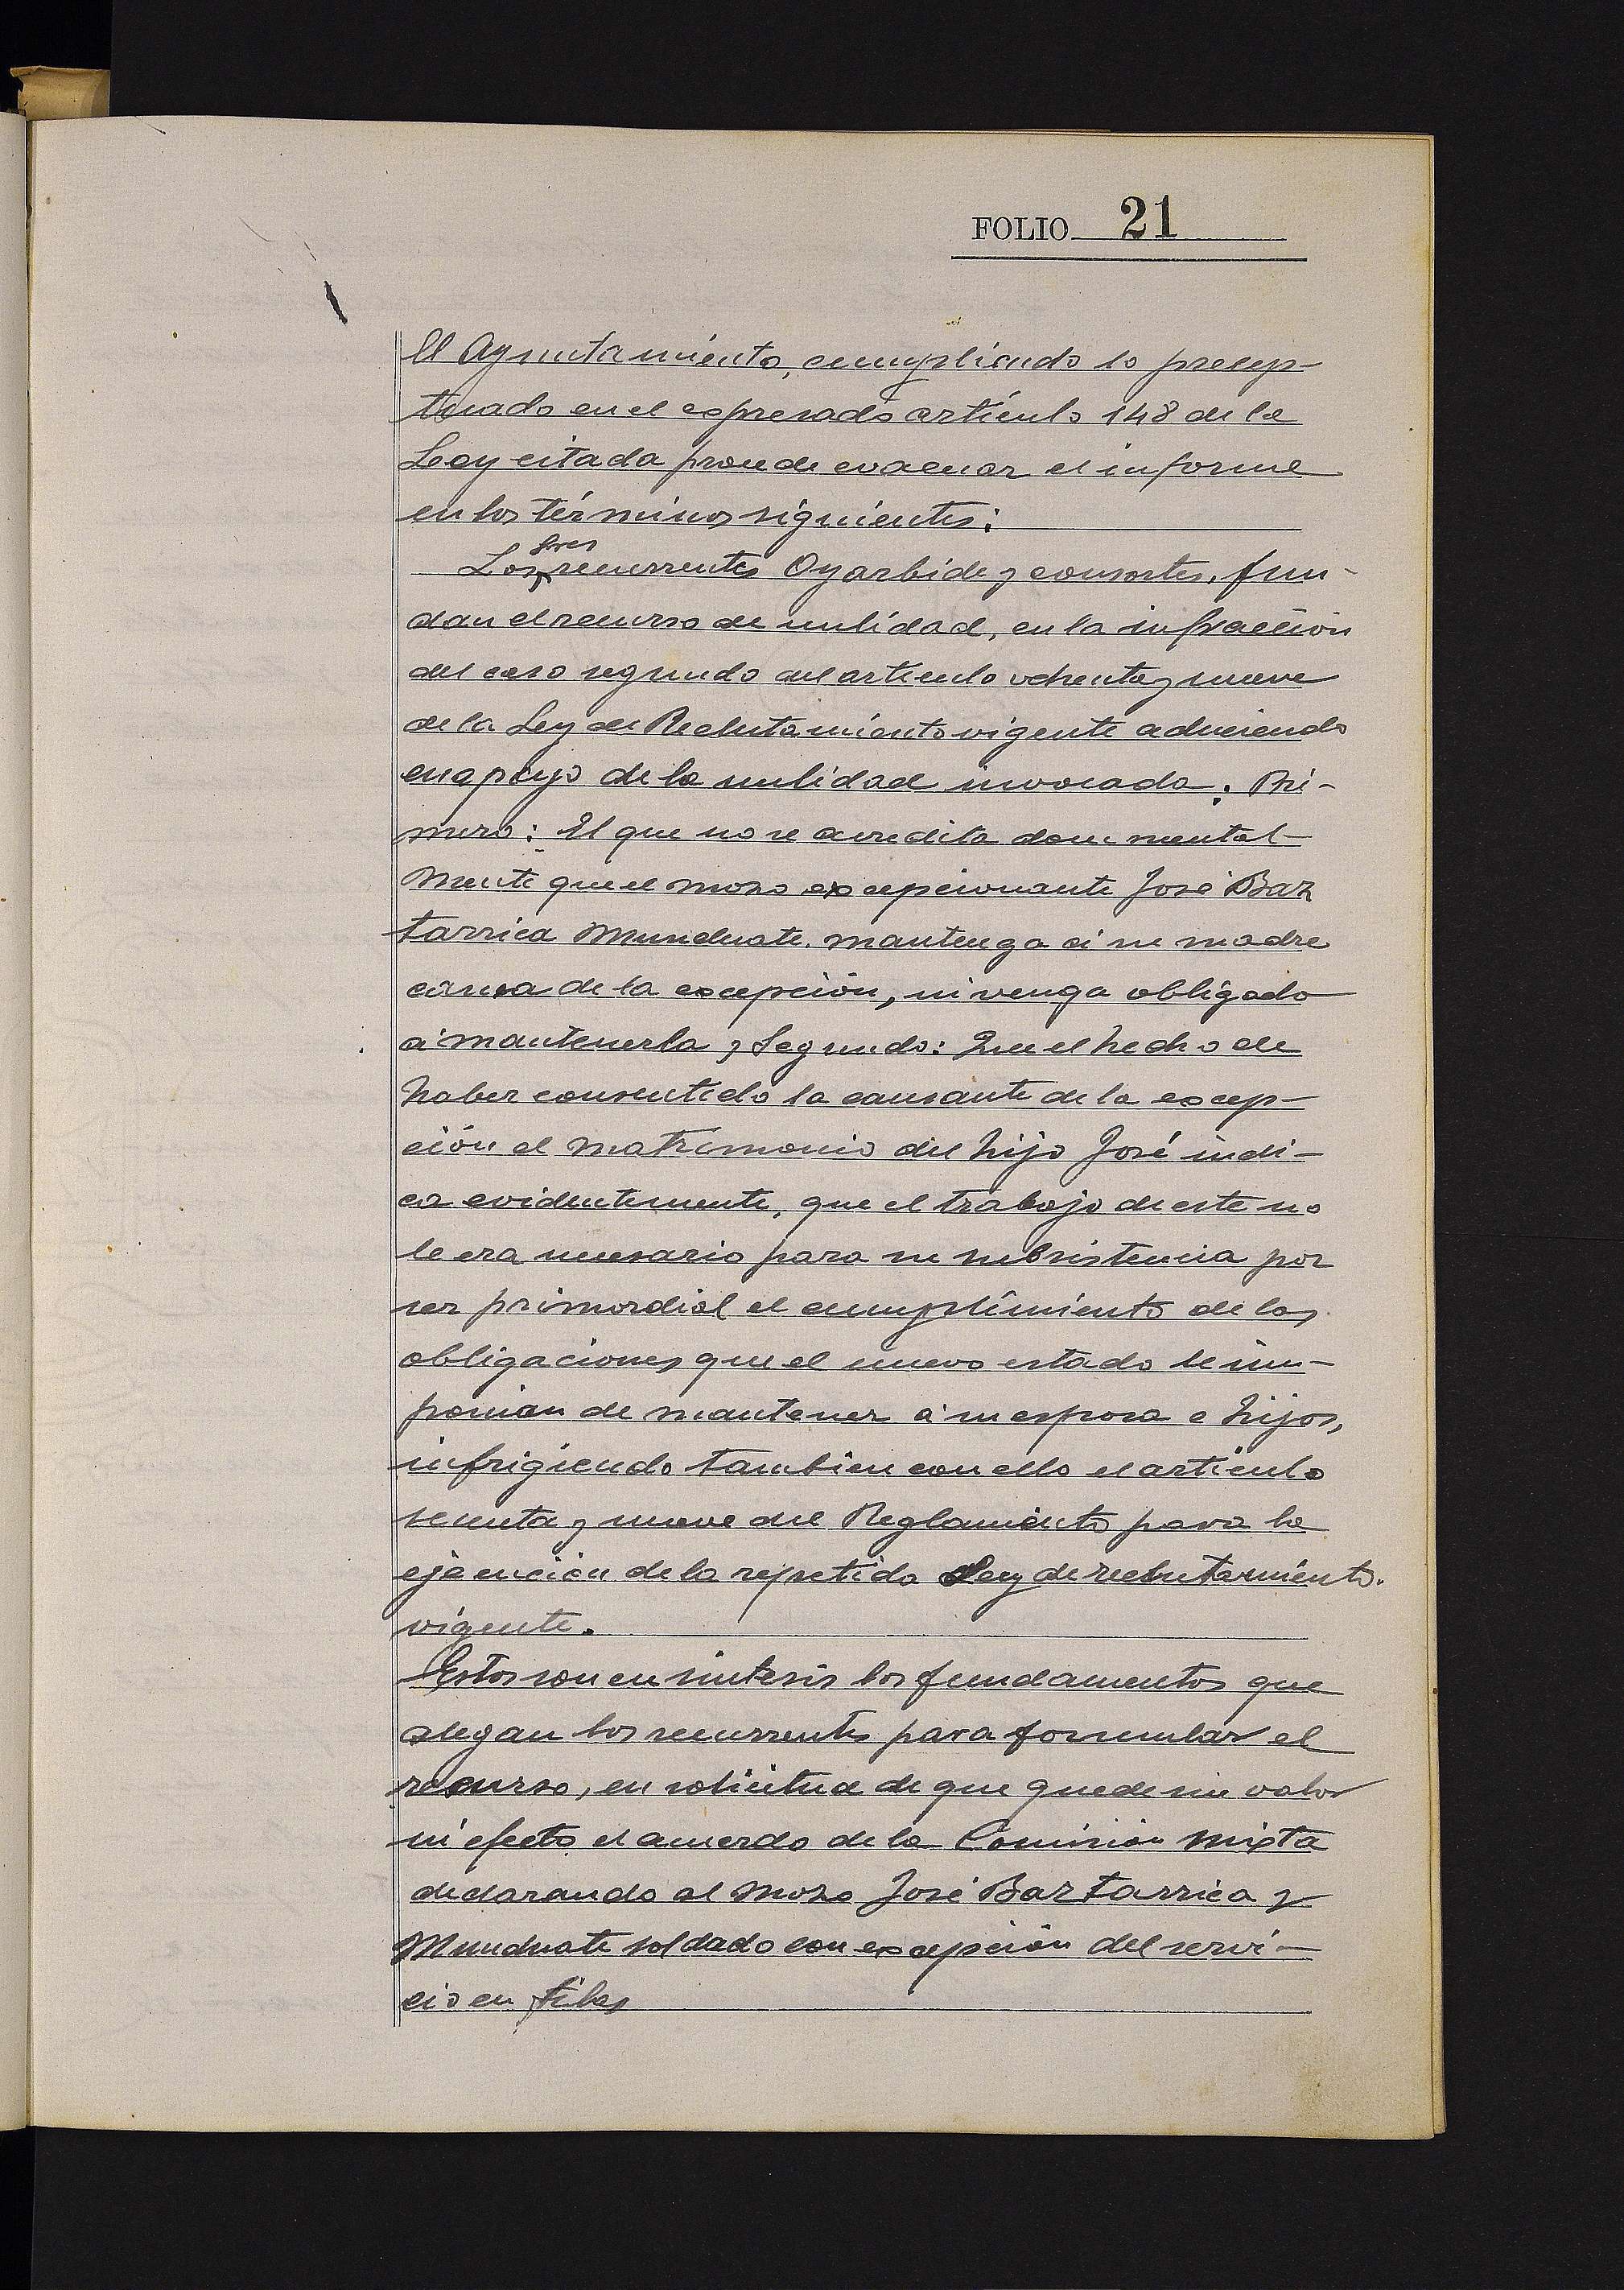 FOLIO 21
El Ayuntamiento, cumpliendo lo precep-
tuado en el expresado artículo 148 de la
Ley citada procede evacuar el informe
en los términos siguientes:
Sres
Los recurrentes Oyarbide y consortes, fun-
dan el recurso de nulidad, en la infracción
del caso segundo del artículo ochenta y nueve
de la Ley de Reclutamiento vigente aduciendo
en apoyo de la nulidad invocada: Pri-
mero: El que no se acredita documental-
mente que el mozo excepcionante José Baz
tarrica Munduate, mantenga á su madre
causa de la excepción, ni venga obligado
á mantenerla y Segundo: Que el hecho de
haber consentido la causante de la excep-
ción el matrimonio del hijo José indi-
ca evidentemente, que el trabajo de este no
le era necesario para su subsistencia por
ser primordial el cumplimiento de las
obligaciones que el nuevo estado le im-
ponian de mantener á su esposa e hijos,
infrigiendo tambien con ello el artículo
setenta y nueve del Reglamento para la
ejecución de la repetida Ley de reclutamiento.
vigente.
Estos son en sintesis los fundamentos que
alegan los recurrentes para formular el
recurso, en solicitud de que quede sin valor
ni efecto el acuerdo de la Comision Mixta
declarando al mozo José Baztarrica y
Munduate soldado con excepción del servi-
cio en filas